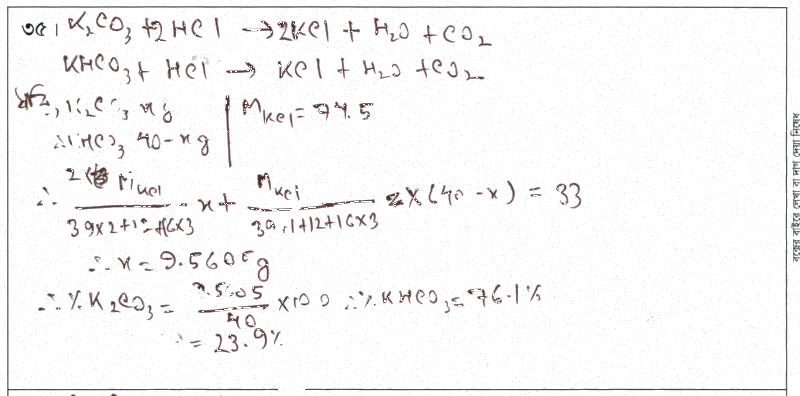 ৩৫। K₂CO₃ + 2HCl → 2KCl + H₂O + CO₂
KHCO₃ + HCl → KCl + H₂O + CO₂
ধরি, K₂CO₃ x g | M_KCl = 74.5
∴ KHCO₃ 40-x g
∴ 2 M_KCl / (39×2+12+16×3) · x + M_KCl / (39+1+12+16×3) × (40-x) = 33
∴ x = 9.5605 g
∴ % K₂CO₃ = 9.5605 / 40 × 100 ∴ % KHCO₃ = 76.1%
= 23.9%
বক্সের বাইরে লেখা বা দাগ দেয়া নিষেধ